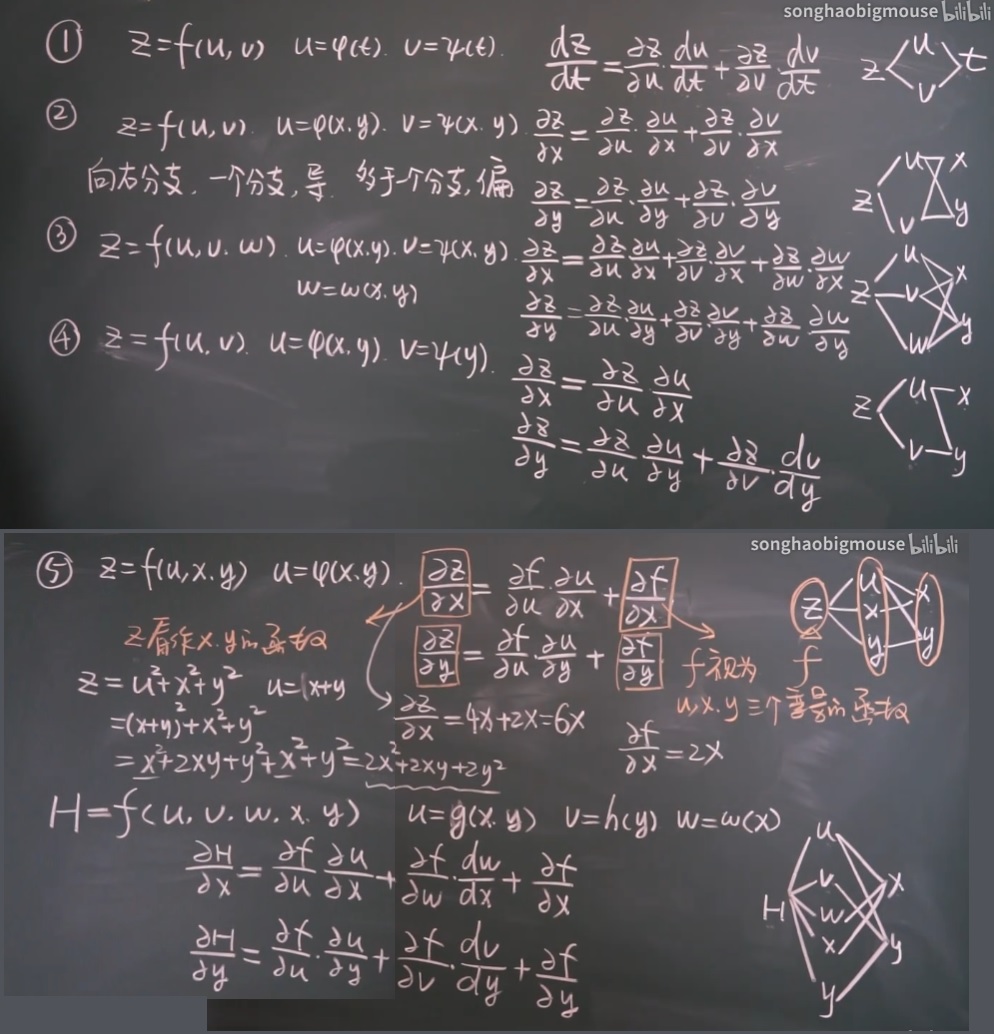 songhaobigmouse bilibili
① Z=f(u,v) u=φ(t). v=ψ(t). dz/dt=∂z/∂u·du/dt+∂z/∂v·dv/dt
z u v t
② z=f(u,v). u=φ(x.y). v=ψ(x.y). ∂z/∂x=∂z/∂u·∂u/∂x+∂z/∂v·∂v/∂x
向右分支.一个分支,导. 多于一个分支,偏 ∂z/∂y=∂z/∂u·∂u/∂y+∂z/∂v·∂v/∂y
z u v x y
③ Z=f(u,v.w). u=φ(x.y). v=ψ(x.y). ∂z/∂x=∂z/∂u ∂u/∂x+∂z/∂v·∂v/∂x+∂z/∂w·∂w/∂x
w=w(x.y) ∂z/∂y=∂z/∂u·∂u/∂y+∂z/∂v·∂v/∂y+∂z/∂w ∂w/∂y
z u v w x y
④ z=f(u,v). u=φ(x.y). v=ψ(y). ∂z/∂x=∂z/∂u·∂u/∂x
∂z/∂y=∂z/∂u·∂u/∂y+∂z/∂v·dv/dy
z u v x y
songhaobigmouse bilibili
⑤ z=f(u,x.y) u=φ(x.y). ∂z/∂x=∂f/∂u·∂u/∂x+∂f/∂x
z看作x.y的函数 ∂z/∂y=∂f/∂u·∂u/∂y+∂f/∂y
z u x y x y
f
f视为
u,x.y三个变量的函数
z=u²+x²+y² u=x+y
=(x+y)²+x²+y² ∂z/∂x=4x+2x=6x ∂f/∂x=2x
=x²+2xy+y²+x²+y²=2x²+2xy+2y²
H=f(u,v.w.x.y) u=g(x.y) v=h(y) w=w(x)
∂H/∂x=∂f/∂u ∂u/∂x+∂f/∂w·dw/dx+∂f/∂x
∂H/∂y=∂f/∂u·∂u/∂y+∂f/∂v·dv/dy+∂f/∂y
H u v w x y x y